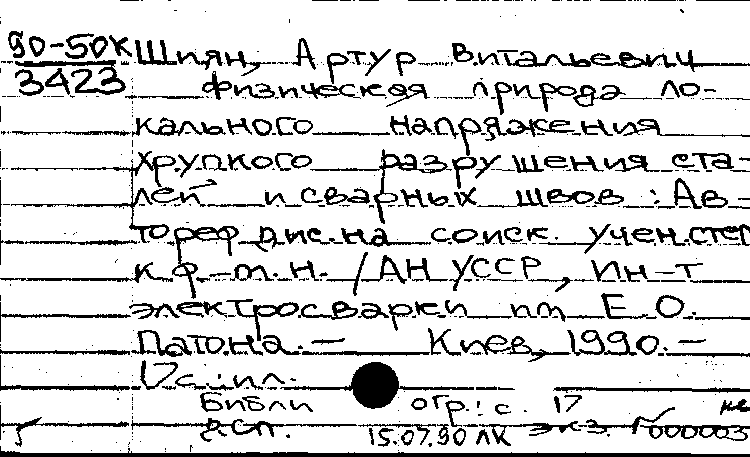 90-50к Шиян, Артур Витальевич
3423 Физическая природа ло-
кального напряжения
хрупкого разрушения ста-
лей и сварных швов : Ав-
тореф дис. на соиск. учен. степ
к. ф-т. н. / АН УССР, Ин-т
электросварки им Е. О.
Патона. — Киев, 1990. —
17 с.: ил.
Библи огр.: с. 17
дсп. 15.07.90 ЛК экз.